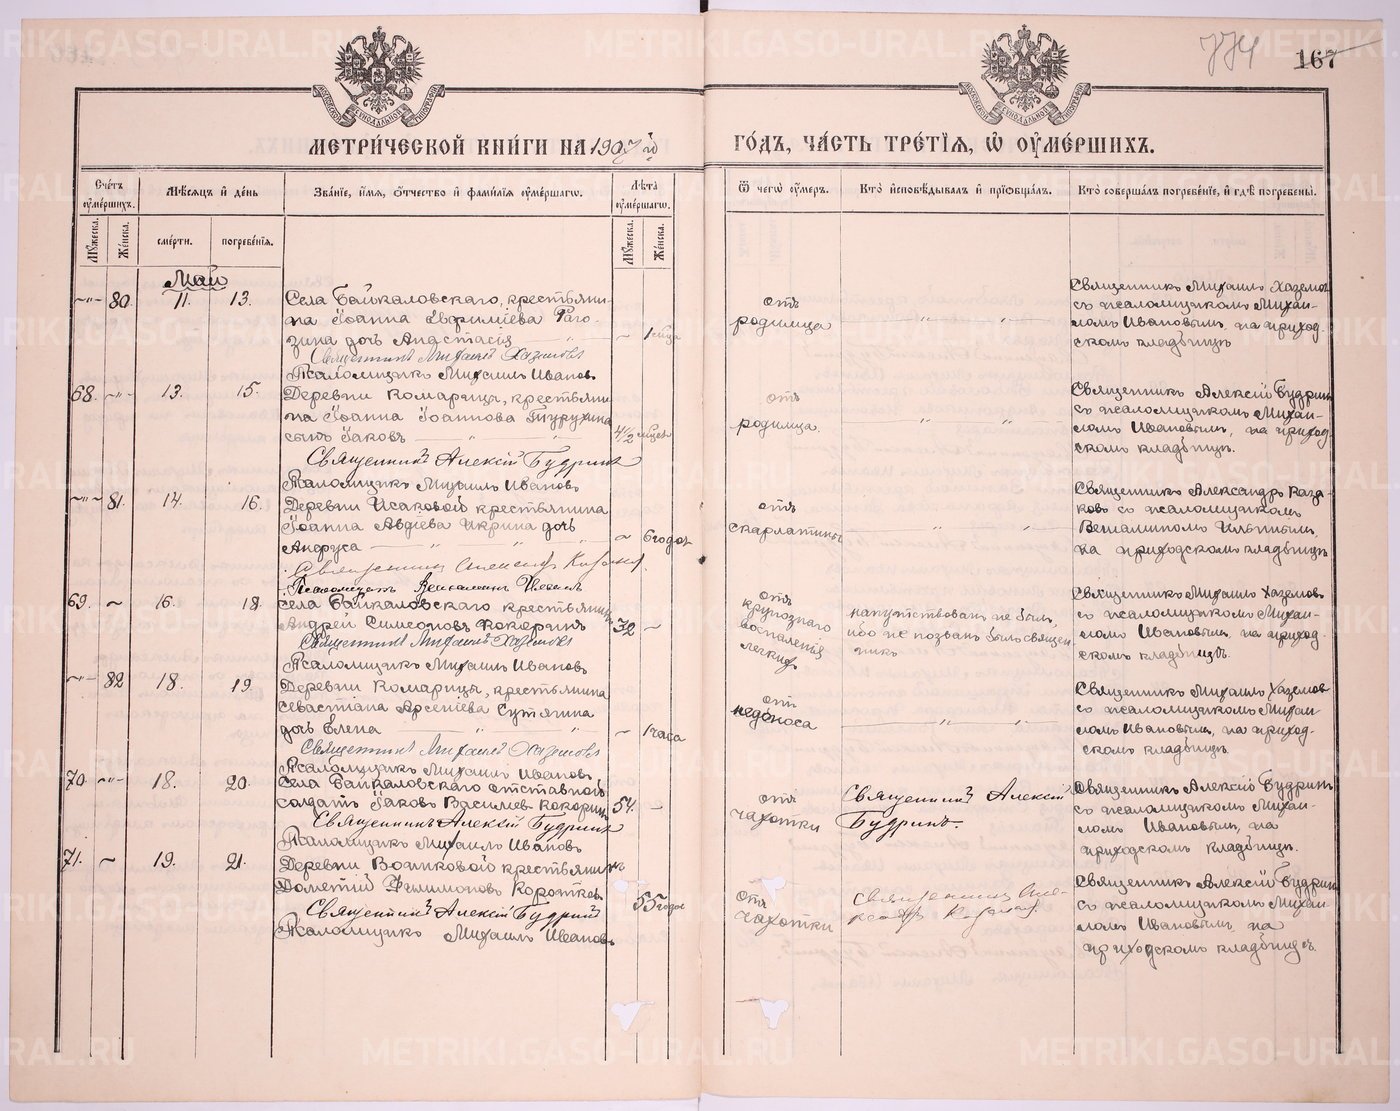 774
167
МЕТРИ́ЧЕСКОЙ КНИ́ГИ НА 1907 й
ГО́ДЪ, ЧА́СТЬ ТРЕ́ТІЯ, Ѡ ОУМЕ́РШИХЪ.
Сче́тъ оуме́ршихъ.
Мѣ́сяцъ и де́нь
Зва́ніе, и́мя, о́тчество и фами́лія оуме́ршагѡ.
Лѣ́та оуме́ршагѡ.
Ѿ чегѡ̀ оу́меръ.
Кто̀ исповѣ́дывалъ и пріѡбща́лъ.
Кто̀ соверша́лъ погребе́ніе, и гдѣ̀ погребены̀.
Му́жеска.
Же́нска.
сме́рти.
погребе́нія.
Му́жеска.
Же́нска.
Май
80. 11. 13.
Села Байкаловскаго, крестьяни-
на Іоанна Евфиміева Раго-
зина дочь Анастасія
Священникъ Михаилъ Хаземовъ
Псаломщикъ Михаилъ Ивановъ
отъ
родимца
Священникъ Михаилъ Хаземов
съ псаломщикомъ Михаи-
ломъ Ивановымъ, на приход-
скомъ кладбищѣ
68. 13. 15.
Деревни Комарица, крестьяни-
на Іоанна Іоаннова Турухина
сынъ Іаковъ
4 1/2 мѣсяц
Священникъ Алексій Будринъ
Псаломщикъ Михаилъ Ивановъ
отъ
родимца.
Священникъ Алексій Будринъ
съ псаломщикомъ Михаи-
ломъ Ивановымъ, на приход-
скомъ кладбищѣ.
81. 14. 16.
Деревни Исаковой крестьянина
Іоанна Авдіева Икрина дочь
6 годов
Священникъ Александръ
Псаломщикъ Веніаминъ
отъ
скарлатины
Священникъ Александръ Каза-
ковъ съ псаломщикомъ
Веніаминомъ Ильинымъ,
на приходскомъ кладбищѣ
69. 16. 18.
Села Байкаловскаго крестьянинъ
Андрей Симеоновъ Кокоринъ
32
Священникъ Михаилъ Хаземовъ
Псаломщикъ Михаилъ Ивановъ
отъ
крупознаго
воспаленія
легкихъ
напутствованъ не былъ,
ибо не позванъ былъ священ-
никъ
Священникъ Михаилъ Хаземовъ
съ псаломщикомъ Михаи-
ломъ Ивановымъ, на приход-
скомъ кладбищѣ.
82 18. 19.
Деревни Комарицы, крестьянина
Севастіана Арсеніева Сутягина
дочь Елена
1 часа
Священникъ Михаилъ Хаземовъ
Псаломщикъ Михаилъ Ивановъ
отъ
недоноса
Священникъ Михаилъ Хаземов
съ псаломщикомъ Михаи-
ломъ Ивановымъ, на приход-
скомъ кладбищѣ.
70. 18. 20.
Села Байкаловскаго отставного
солдатъ Іаковъ Василіевъ Кокоринъ
54.
Священникъ Алексій Будринъ
Псаломщикъ Михаилъ Ивановъ
отъ
чахотки
Священникъ Алексій
Будринъ.
Священникъ Алексій Будринъ
съ псаломщикомъ Михаи-
ломъ Ивановымъ, на
приходскомъ кладбищѣ.
71. 19. 21.
Деревни Водиковой крестьянинъ
Дометій Филимоновъ Коротковъ
55 годов
Священникъ Алексій Будринъ
Псаломщикъ Михаилъ Ивановъ
отъ
чахотки
Священникъ Але-
Священникъ Алексій Будринъ
съ псаломщикомъ Михаи-
ломъ Ивановымъ, на
приходскомъ кладбищѣ.
METRIKI.GASO-URAL.RU